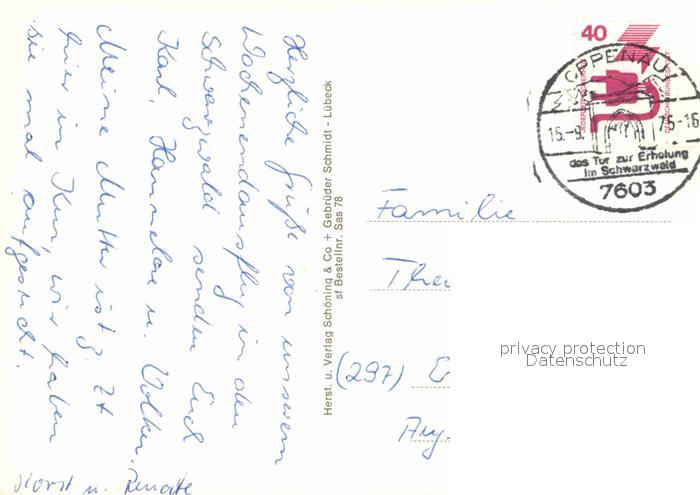 Herzliche Grüße von unserem
Wochenendausflug in den
Schwarzwald senden Euch
Karl, Hannelore u. Volker.
Meine Mutter ist z. Zt
hier in Kur, wir haben
sie mal aufgesucht.
Horst u. Renate
Herst. u. Verlag Schöning & Co + Gebrüder Schmidt - Lübeck
sf Bestellnr. Sas 78
40
DEUTSCHE BUNDESPOST
OPPENAU
15.-9. 75-16
das Tor zur Erholung
im Schwarzwald
7603
Familie
The
(297) E
privacy protection
Datenschutz